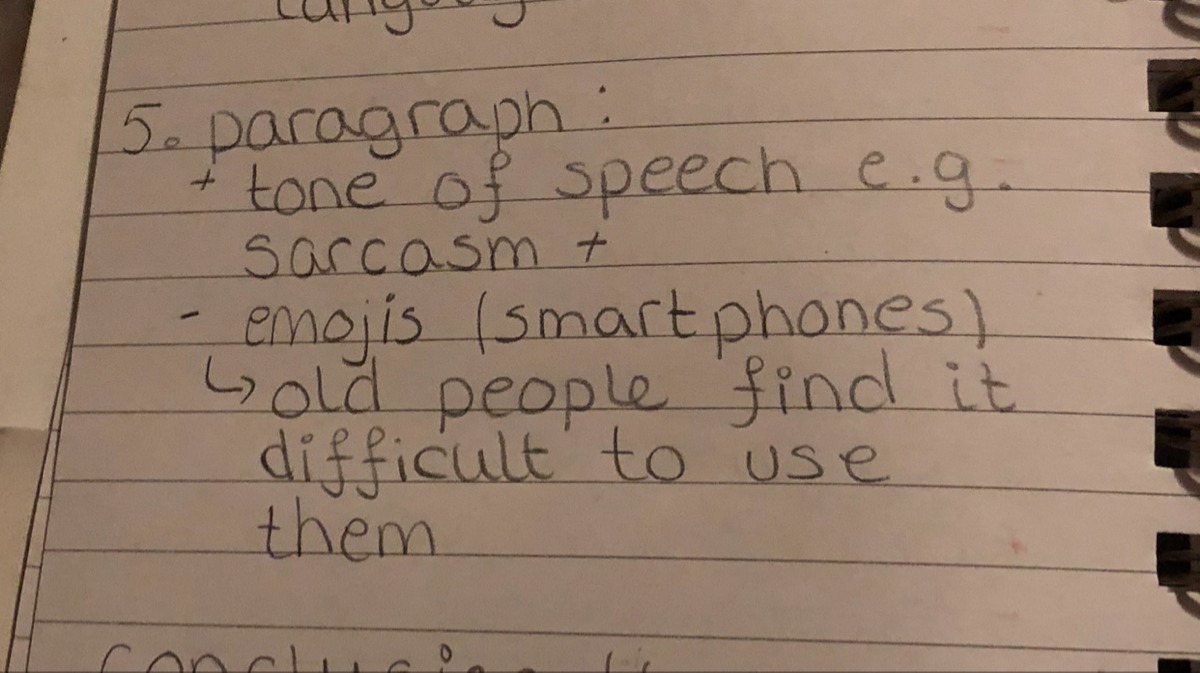 5. paragraph :
+ tone of speech e.g.
sarcasm +
- emojis (smartphones)
↳ old people find it
difficult to use
them